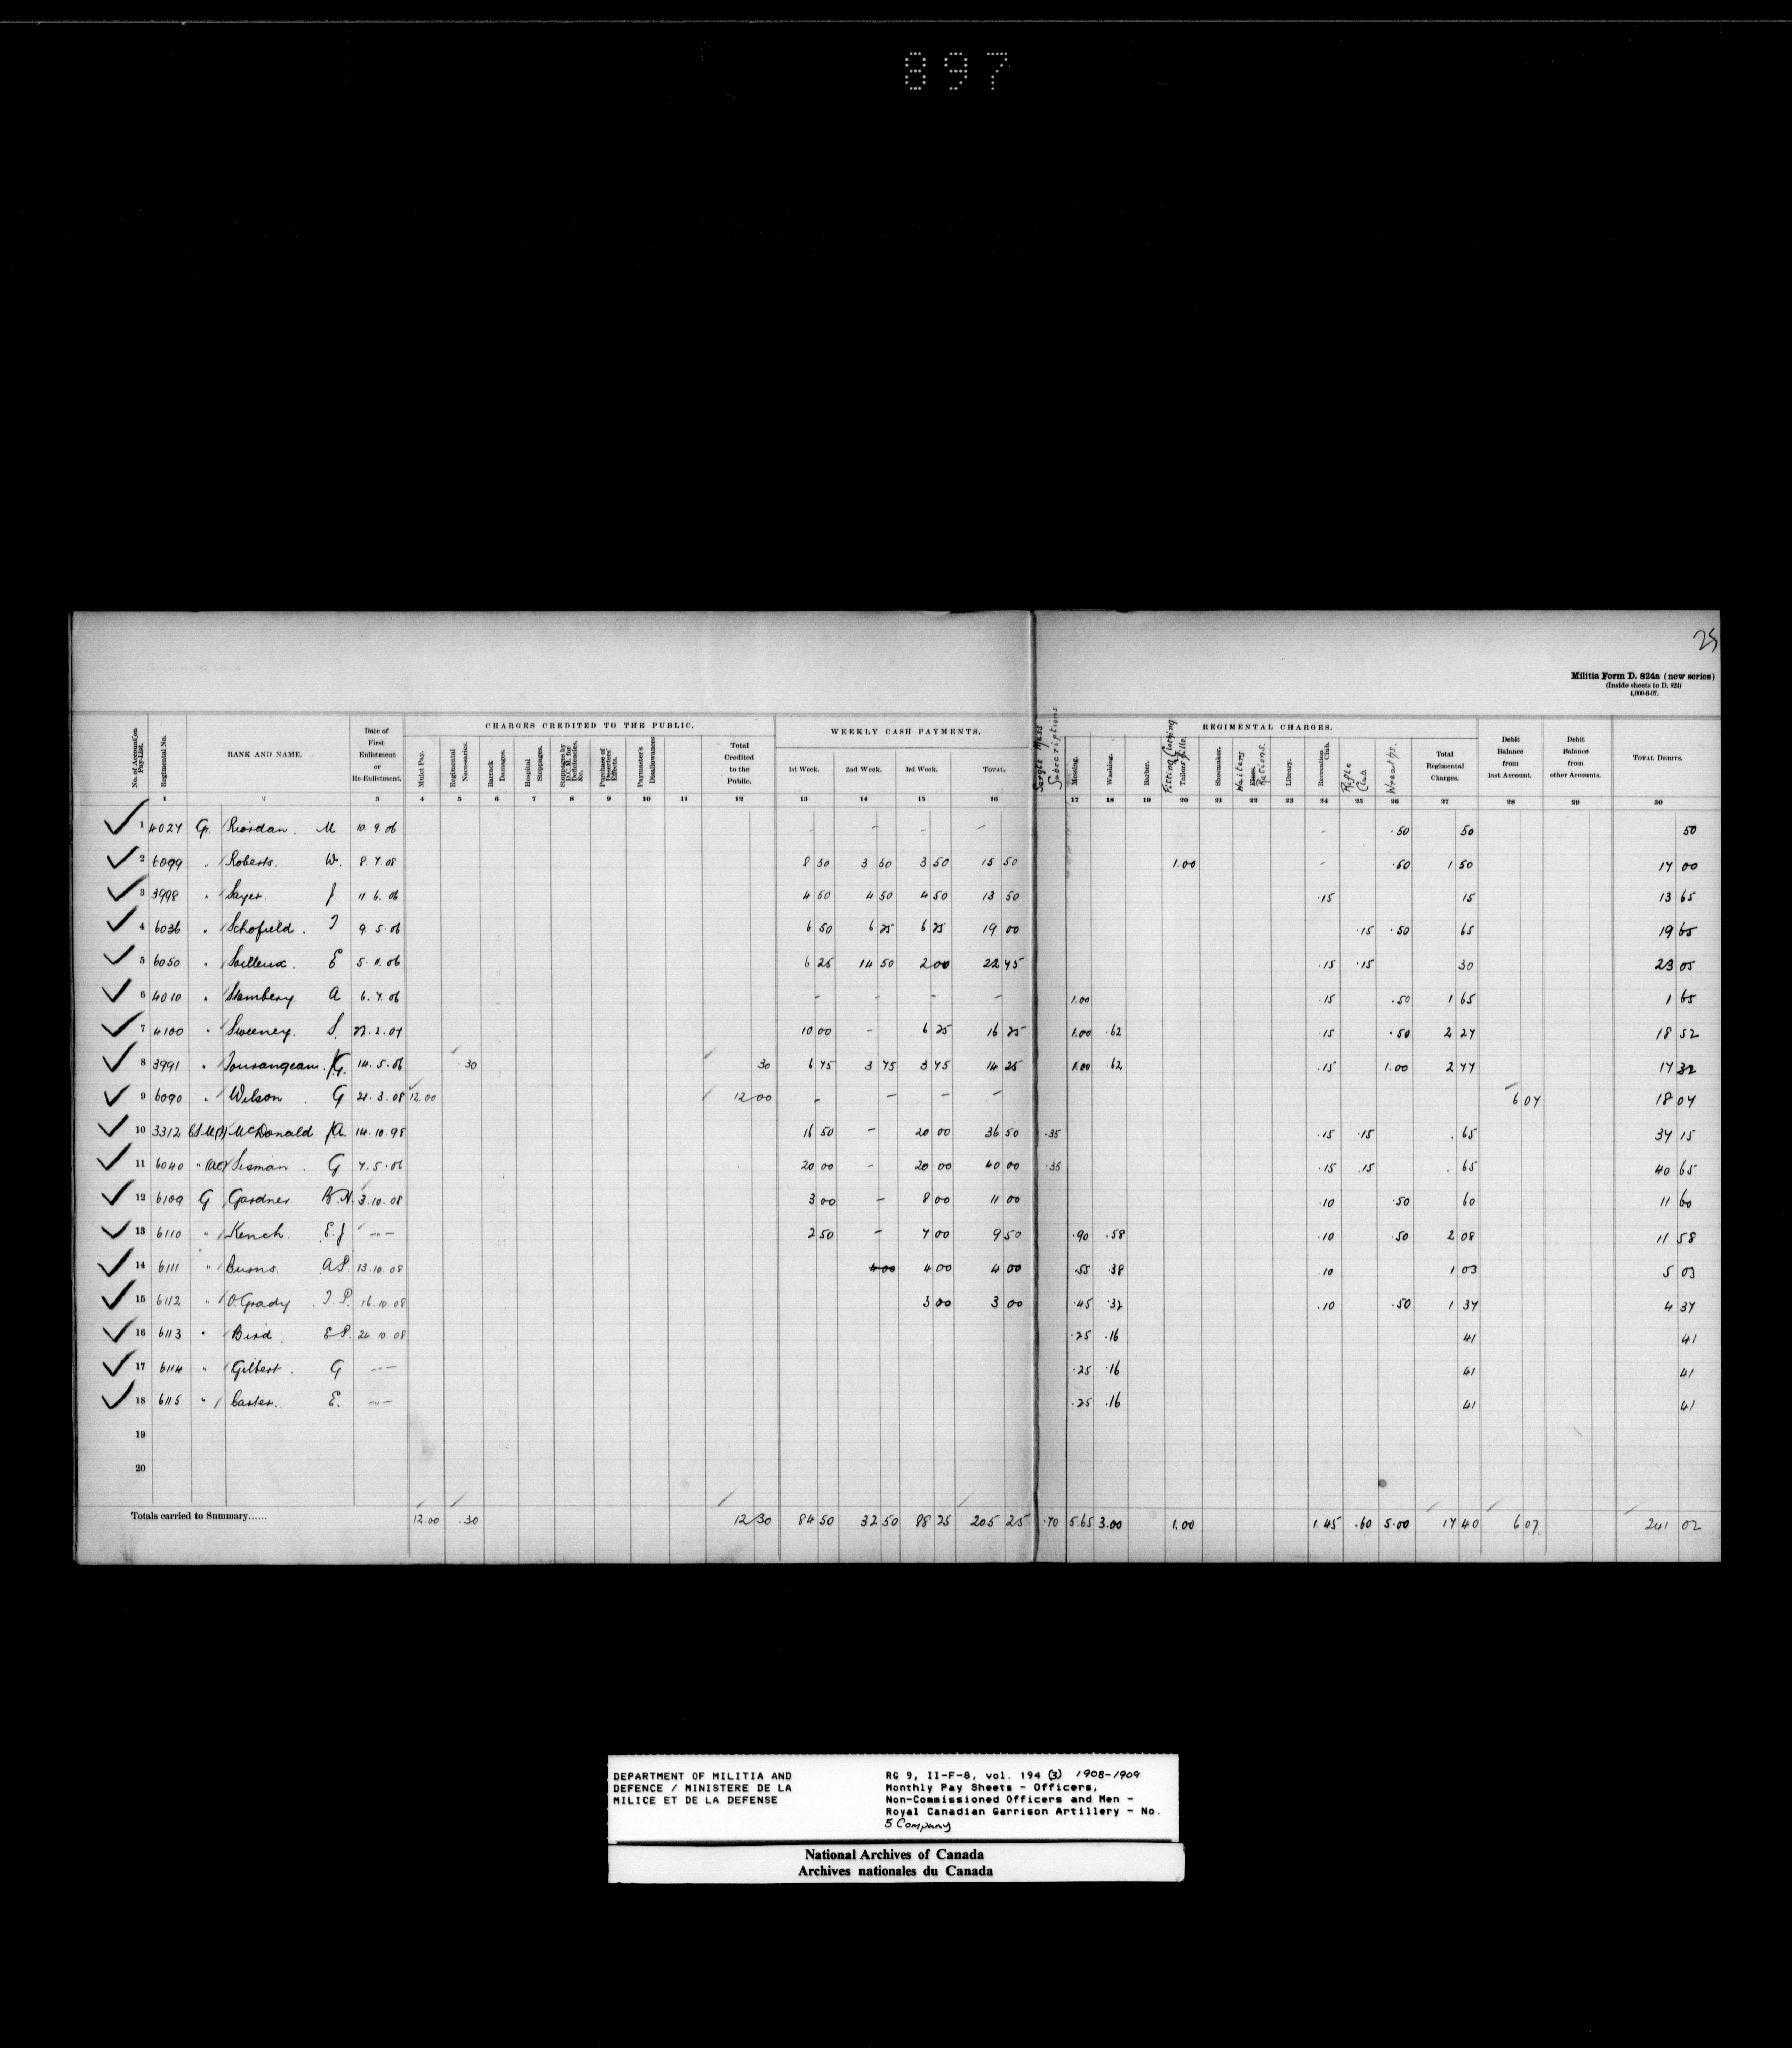 897
25
Militia Form D. 824a (new series)
(Inside sheets to D. 824)
4,000-6-07.
No. of Account on Pay-List. Regimental No. RANK AND NAME. Date of First Enlistment or Re-Enlistment. CHARGES CREDITED TO THE PUBLIC. WEEKLY CASH PAYMENTS. REGIMENTAL CHARGES. Debit Balance from last Account. Debit Balance from other Accounts. TOTAL DEBITS.
Mulct Pay. Regimental Necessaries. Barrack Damages. Hospital Stoppages. Stoppages by D.C.M. for Deficiencies, &c. Purchase of Deserters' Effects. Paymaster's Disallowances Total Credited to the Public. 1st Week. 2nd Week. 3rd Week. TOTAL. Sergts Mess Subscriptions Messing. Washing. Barber. Fitting Clothing Tailor Shoemaker. Waiters Rations. Library. Recreation Club. Rifle Club. Wreaths. Total Regimental Charges.
1 2 3 4 5 6 7 8 9 10 11 12 13 14 15 16 17 18 19 20 21 22 23 24 25 26 27 28 29 30
1 4027 Gr. Riordan. M 10.9.06 - - - - - .50 50 50
2 6099 " Roberts. W. 8.7.08 8 50 3 50 3 50 15 50 1.00 - .50 1 50 17 00
3 3998 " Sayer. J 11.6.06 4 50 4 50 4 50 13 50 .15 15 13 65
4 6036 " Schofield. T 9.5.06 6 50 6 25 6 25 19 00 .15 .50 65 19 65
5 6050 " Soilleux. E 5.11.06 6 25 14 50 2 00 22 75 .15 .15 30 23 05
6 4010 " Stanbery A 6.7.06 - - - - 1.00 .15 .50 1 65 1 65
7 4100 " Sweeney. S. 23.2.07 10 00 - 6 25 16 25 1.00 .62 .15 .50 2 27 18 52
8 3991 " Tourangeau. G. 14.5.06 .30 30 6 75 3 75 3 75 14 25 1.00 .62 .15 1.00 2 77 17 32
9 6090 " Wilson G 21.3.08 12.00 12 00 - - - - 6 07 18 07
10 3312 McDonald A. 14.10.98 16 50 - 20 00 36 50 .35 .15 .15 .65 37 15
11 6040 " Sisman. G 7.5.06 20 00 - 20 00 40 00 .35 .15 .15 .65 40 65
12 6109 G Gardner. 3.10.08 3 00 - 8 00 11 00 .10 .50 60 11 60
13 6110 " Kench. E.J " 2 50 - 7 00 9 50 .90 .58 .10 .50 2 08 11 58
14 6111 " Burns. A P. 13.10.08 4 00 4 00 4 00 .55 .38 .10 1 03 5 03
15 6112 " O'Grady. J. P. 16.10.08 3 00 3 00 .45 .32 .10 .50 1 37 4 37
16 6113 " Bird. E P. 24.10.08 .25 .16 41 41
17 6114 " Gilbert. G " .25 .16 41 41
18 6115 " Carter. E. " .25 .16 41 41
19
20
Totals carried to Summary...... 12.00 .30 12 30 84 50 32 50 88 25 205 25 .70 5.65 3.00 1.00 1.45 .60 5.00 17 40 6 07 241 02
DEPARTMENT OF MILITIA AND
DEFENCE / MINISTERE DE LA
MILICE ET DE LA DEFENSE
RG 9, II-F-8, vol. 194 (3) 1908-1909
Monthly Pay Sheets - Officers,
Non-Commissioned Officers and Men -
Royal Canadian Garrison Artillery - No.
5 Company
National Archives of Canada
Archives nationales du Canada